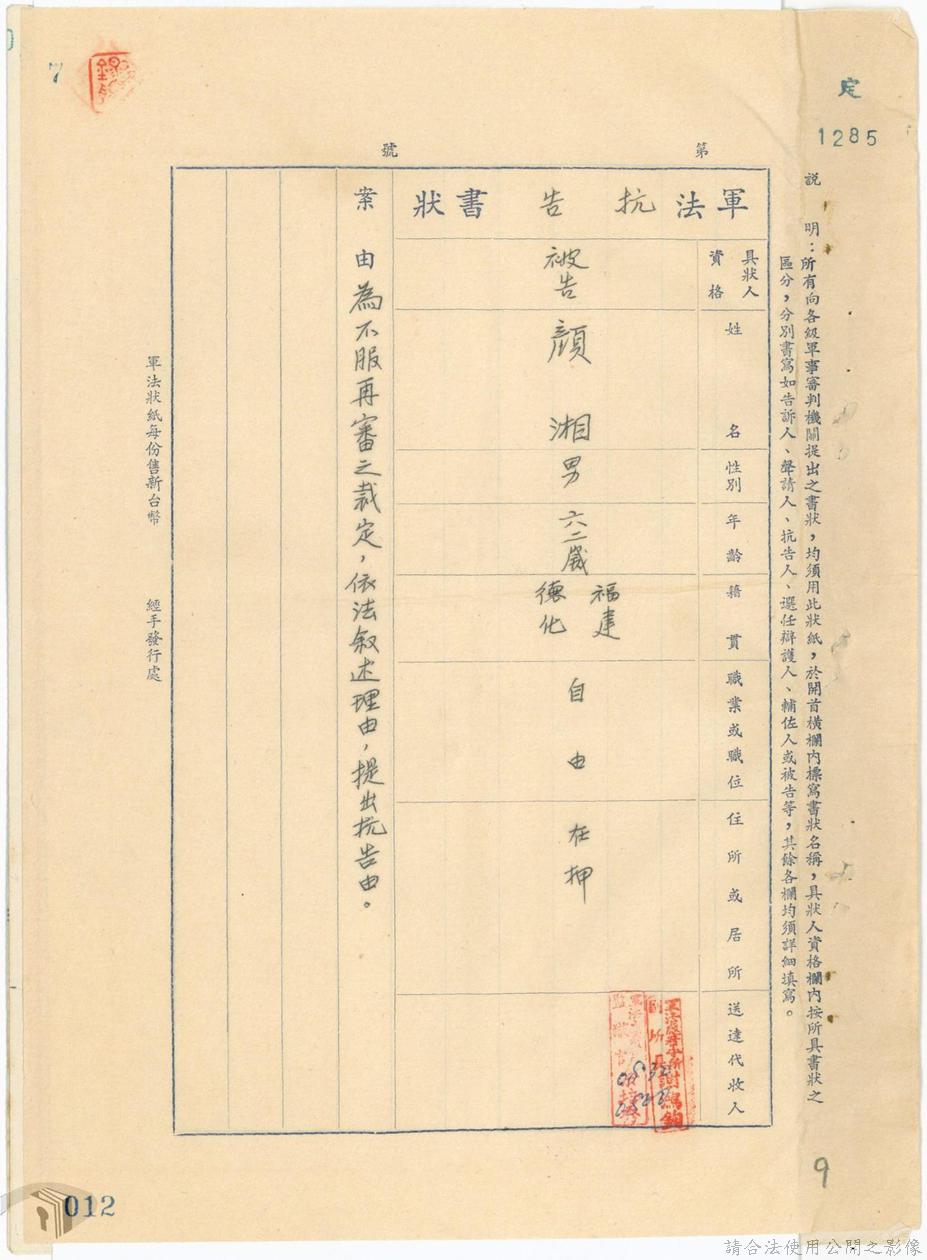 定
1285
7
第 號
說明：所有向各級軍事審判機關提出之書狀，均須用此狀紙，於開首橫欄內標寫書狀名稱，具狀人資格欄內按所具書狀之
區分，分別書寫如告訴人、聲請人、抗告人、選任辯護人、輔佐人或被告等，其餘各欄均須詳細填寫。
軍法抗告書狀
具狀人資格
被告
姓名
顏湘
性別
男
年齡
六二歲
籍貫
福建
德化
職業或職位
自由
住所或居所
在押
送達代收人
案由為不服再審之裁定，依法叙述理由，提出抗告由。
軍法狀紙每份售新台幣 經手發行處
9
012
請合法使用公開之影像